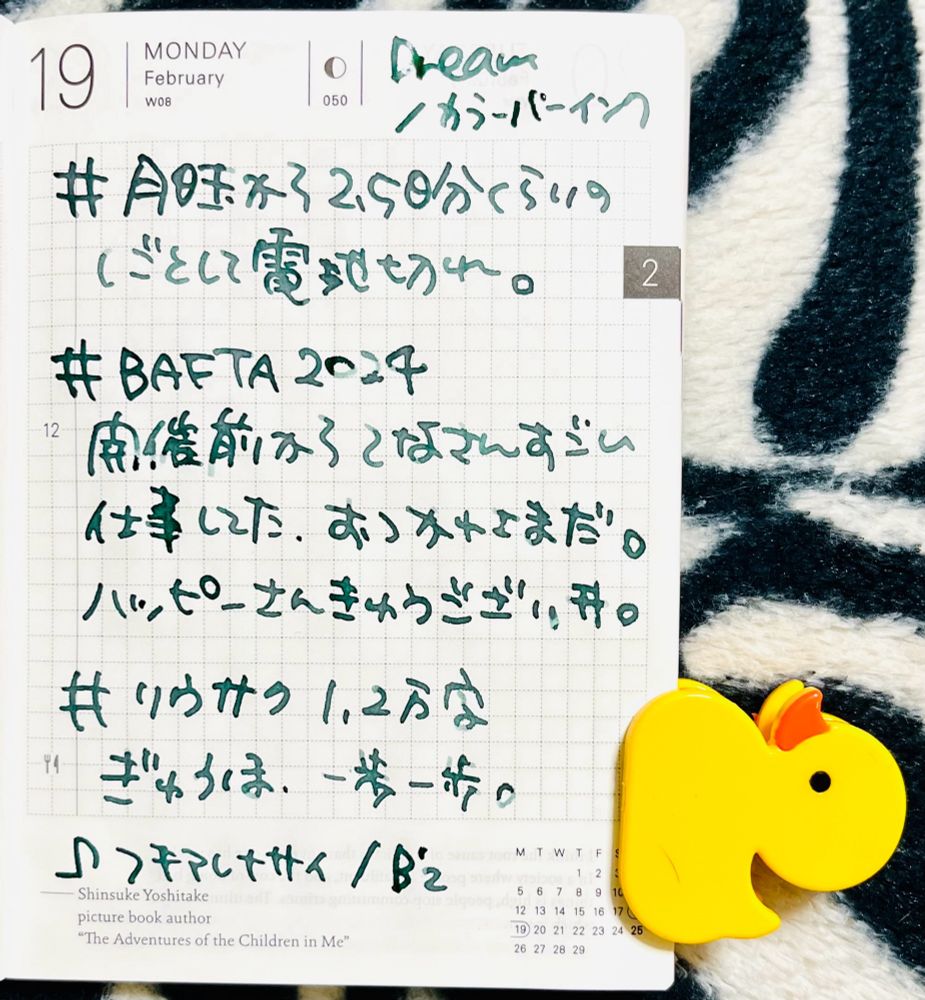 19 MONDAY
February
W08
050
Dream
# 月曜から2.5日分くらいの
しごとして電池切れ。
2
# BAFTA 2024
12
開催前から すごい
仕事してた. おつかれさまだ。
ハッピーさんきゅうござい
# リウサク 1.2万字
ぎゅうほ. 一歩一歩。
♫ フキアレナサイ / B'z
Shinsuke Yoshitake
picture book author
"The Adventures of the Children in Me"
M T W T F S
1 2 3
5 6 7 8 9 10
12 13 14 15 16 17
19 20 21 22 23 24 25
26 27 28 29